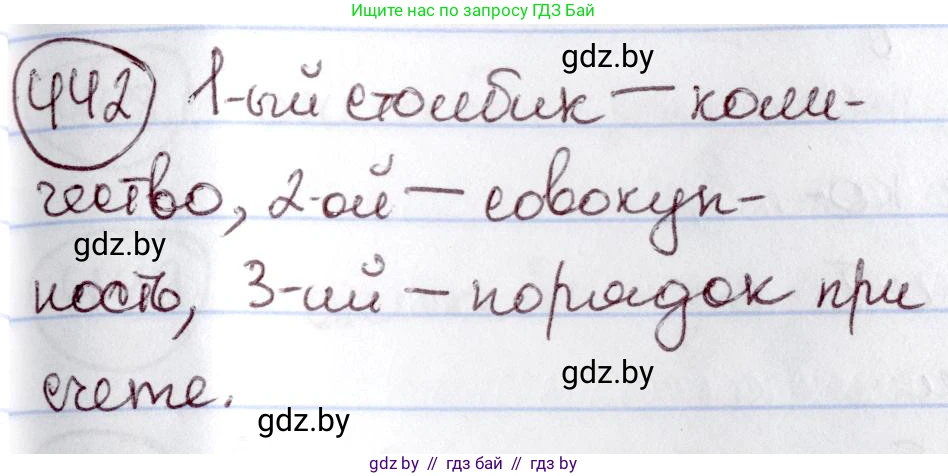 Ищите нас по запросу ГДЗ Бай
gdz.by
442 1-ый столбик — коли-
чество, 2-ой — совокуп-
gdz.by
ность, 3-ий — порядок при
gdz.by
счете.
gdz.by
gdz.by // гдз бай // gdz.by